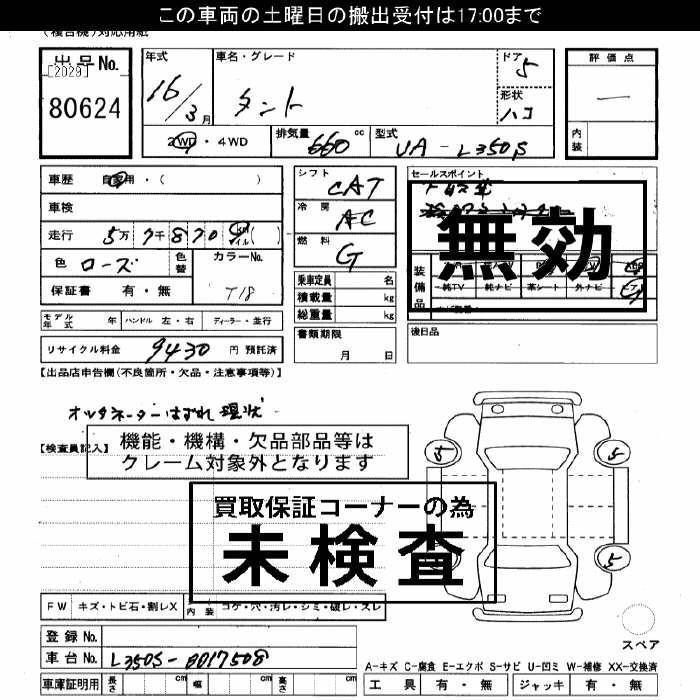 この車両の土曜日の搬出受付は17:00まで
(複合機)対応用紙
出品No. [2029] 80624
年式 16/3月
車名・グレード タント
ドア 5
形状 ハコ
評価点 ー
内装
2WD・4WD
排気量 660 cc
型式 UA-L350S
車歴 自家用・( )
車検
走行 5万7千870
色 ローズ
色替
カラーNo. T18
保証書 有・無
シフト CAT
冷房 AC
燃料 G
乗車定員 名
積載量 kg
総重量 kg
書類期限 月 日
セールスポイント
無効
装備品
純TV 純ナビ 革シート 外ナビ
後日品
モデル年式 年 ハンドル 左・右 ディーラー・並行
リサイクル料金 9430 円 預託済
【出品店申告欄(不良箇所・欠品・注意事項等)】
オルタネーターはずれ 現状
【検査員記入】
機能・機構・欠品部品等は
クレーム対象外となります
買取保証コーナーの為
未検査
5 5
5
FW キズ・トビ石・割レX 内装 コゲ・穴・汚レ・シミ・破レ・スレ
スペア
登録No.
車台No. L350S-0017508
A-キズ C-腐食 E-エクボ S-サビ U-凹ミ W-補修 XX-交換済
車庫証明用 長さ cm 幅 cm 高さ cm
工具 有・無 ジャッキ 有・無